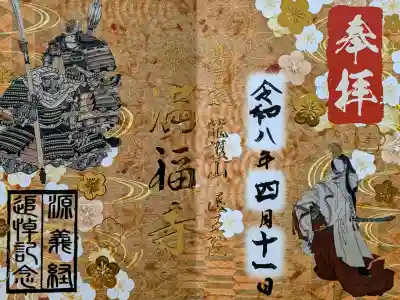 奉拝
令和八年四月十一日
満福寺
源義経
追悼記念